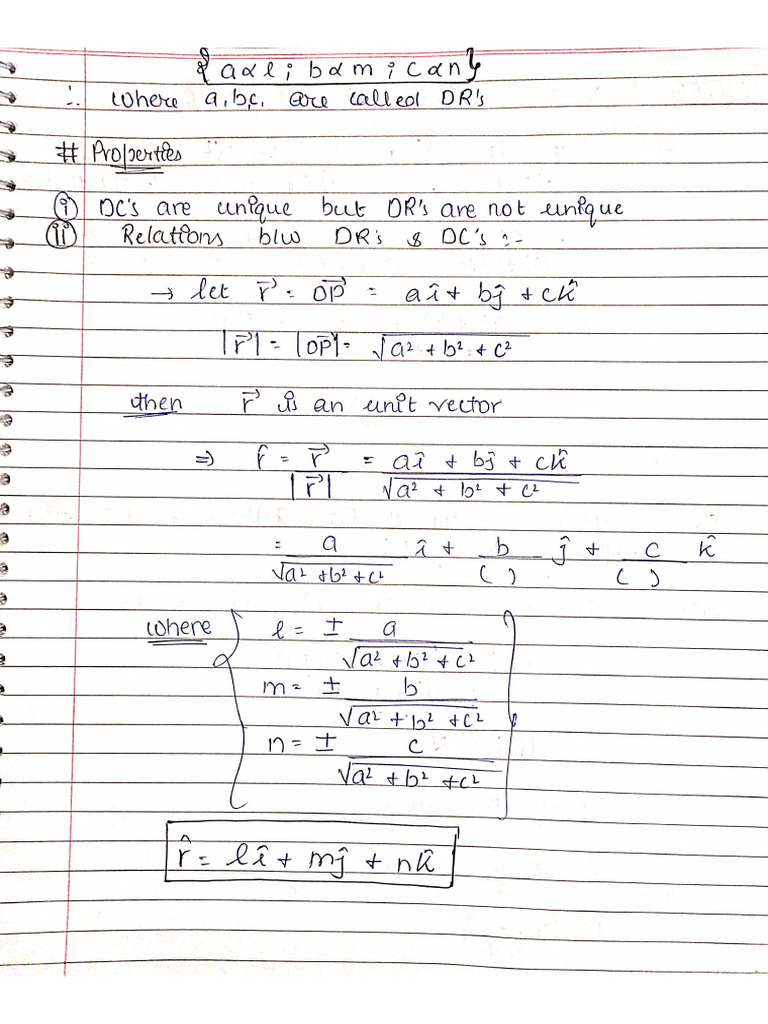 { a α l ; b α m ; c α n }
∴ where a, b, c, are called DR's
# Properties
(i) DC's are unique but DR's are not unique
(ii) Relations b/w DR's & DC's :-
→ let r⃗ = OP⃗ = aî + bĵ + ck̂
|r⃗| = |OP⃗| = √(a² + b² + c²)
then r⃗ is an unit vector
⇒ r̂ = r⃗ / |r⃗| = (aî + bĵ + ck̂) / √(a² + b² + c²)
= a / √(a² + b² + c²) î + b / ( ) ĵ + c / ( ) k̂
where { l = ± a / √(a² + b² + c²)
m = ± b / √(a² + b² + c²)
n = ± c / √(a² + b² + c²) }
r̂ = lî + mĵ + nk̂